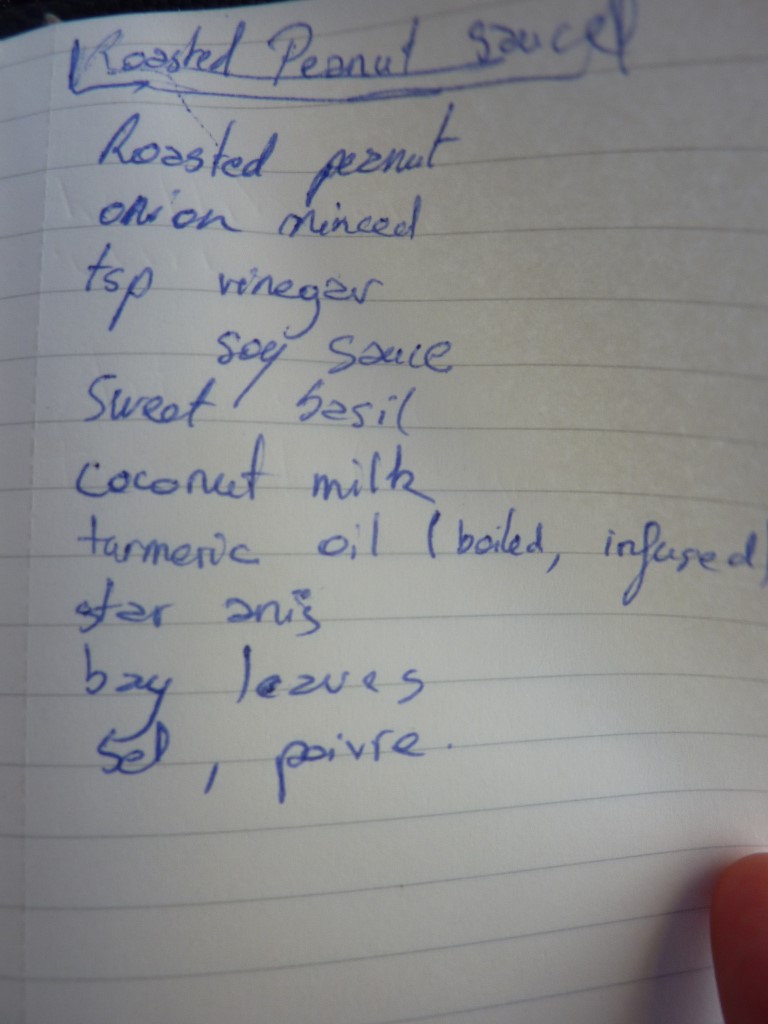 Roasted Peanut sauce
Roasted peanut
onion minced
tsp vinegar
soy sauce
Sweet basil
coconut milk
turmeric oil (boiled, infused)
star anis
bay leaves
sel, poivre.